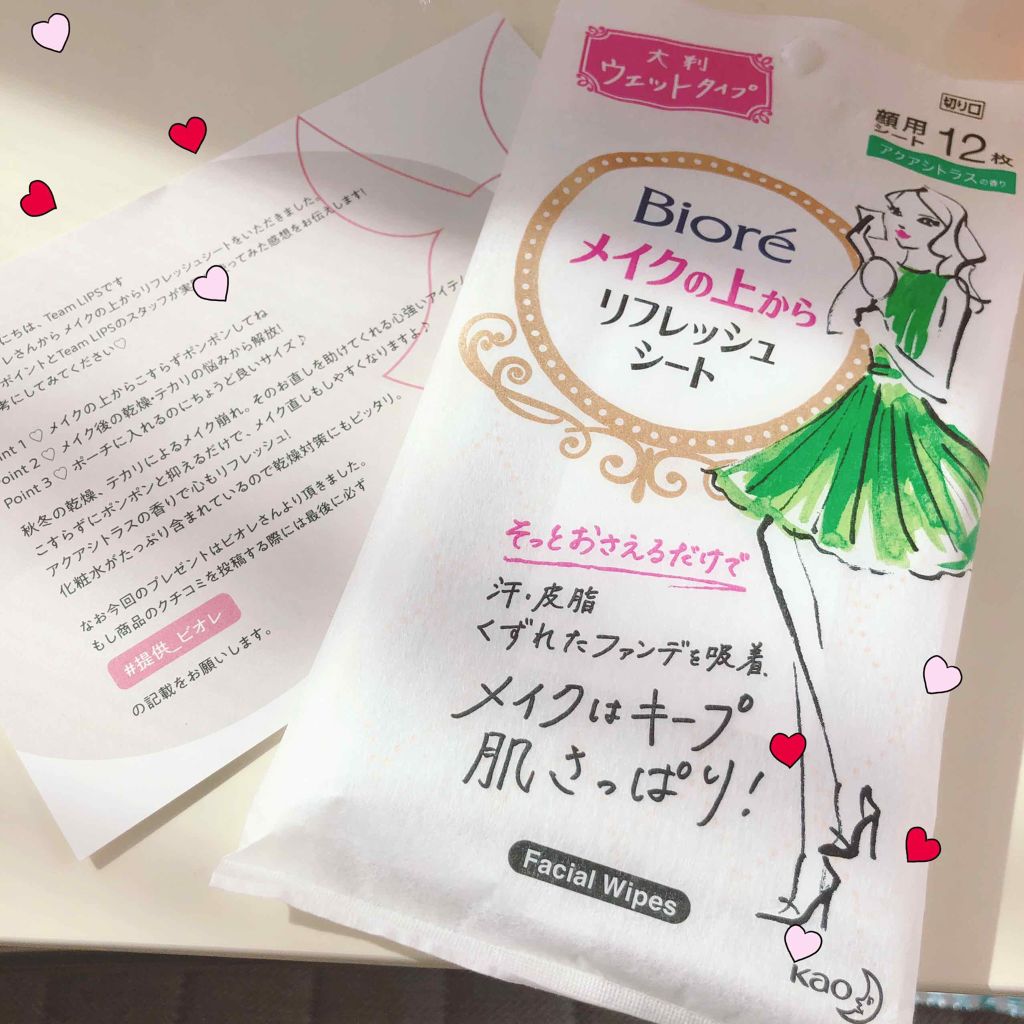 にちは、Team LIPSです
レさんから メイクの上からリフレッシュシートをいただきました。
ポイントとTeam LIPSのスタッフが実 ってみた感想をお伝えします!
考にしてみてください♡
int 1 ♡ メイクの上からこすらずポンポンしてね
Point 2 ♡ メイク後の乾燥・テカリの悩みから解放!
Point 3 ♡ ポーチに入れるのにちょうど良いサイズ♪
秋冬の乾燥、テカリによるメイク崩れ。そのお直しを助けてくれる心強いアイテ
こすらずにポンポンと抑えるだけで、メイク直しもしやすくなりますよ♪
アクアシトラスの香りで心もリフレッシュ!
化粧水がたっぷり含まれているので乾燥対策にもピッタリ。
なお今回のプレゼントはビオレさんより頂きました。
もし商品のクチコミを投稿する際には最後に必ず
#提供_ビオレ
の記載をお願いします。
大判
ウェットタイプ
切り口
顔用
シート 12枚
アクアシトラスの香り
Bioré
メイクの上から
リフレッシュ
シート
そっとおさえるだけで
汗・皮脂
くずれたファンデを吸着、
メイクはキープ
肌さっぱり!
Facial Wipes
kao